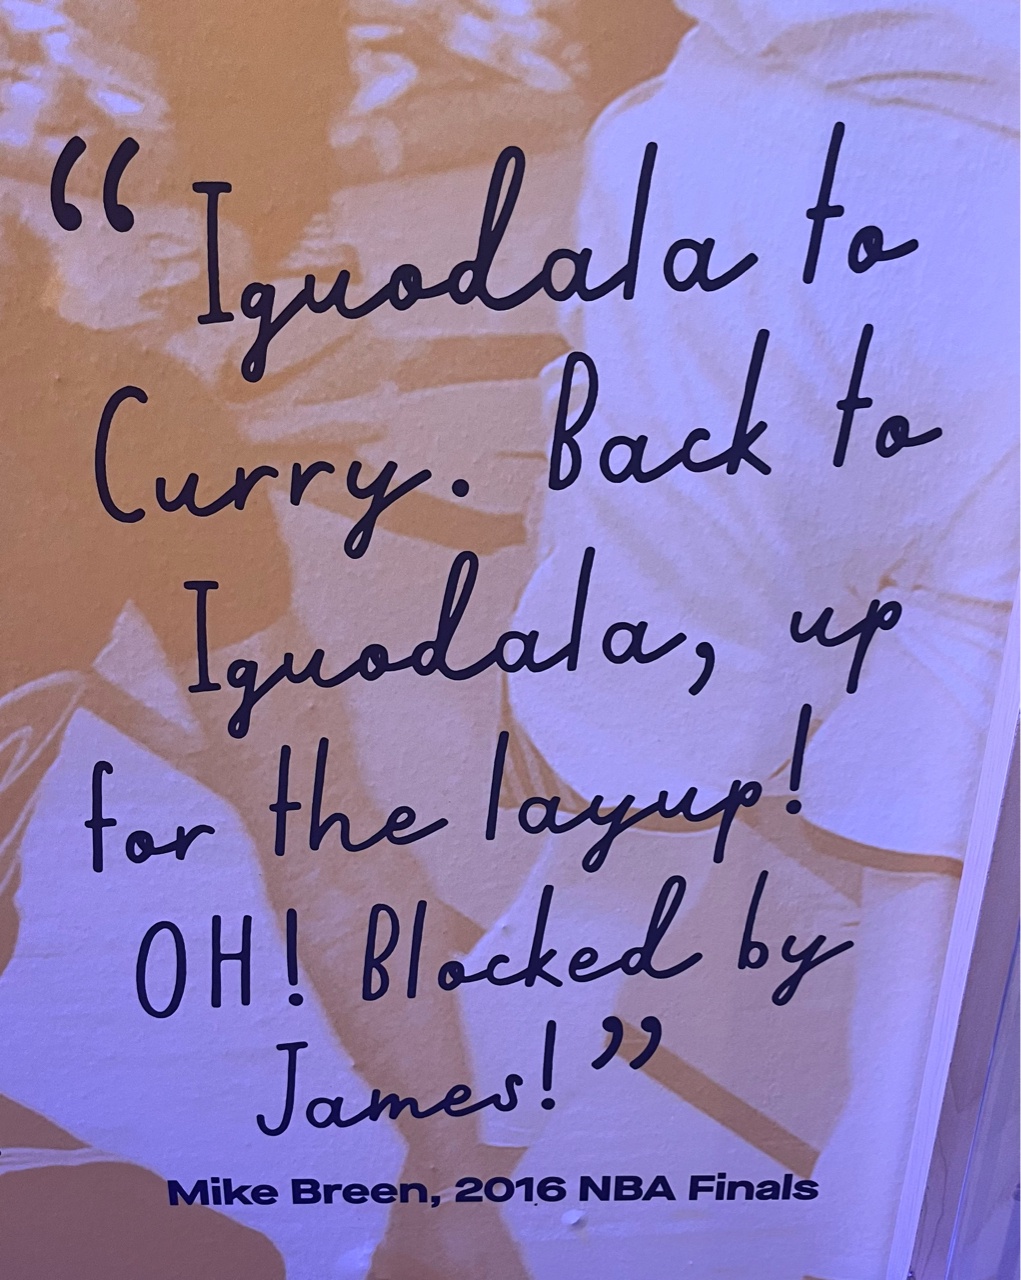 “Iguodala to
Curry. Back to
Iguodala, up
for the layup!
OH! Blocked by
James!”
Mike Breen, 2016 NBA Finals